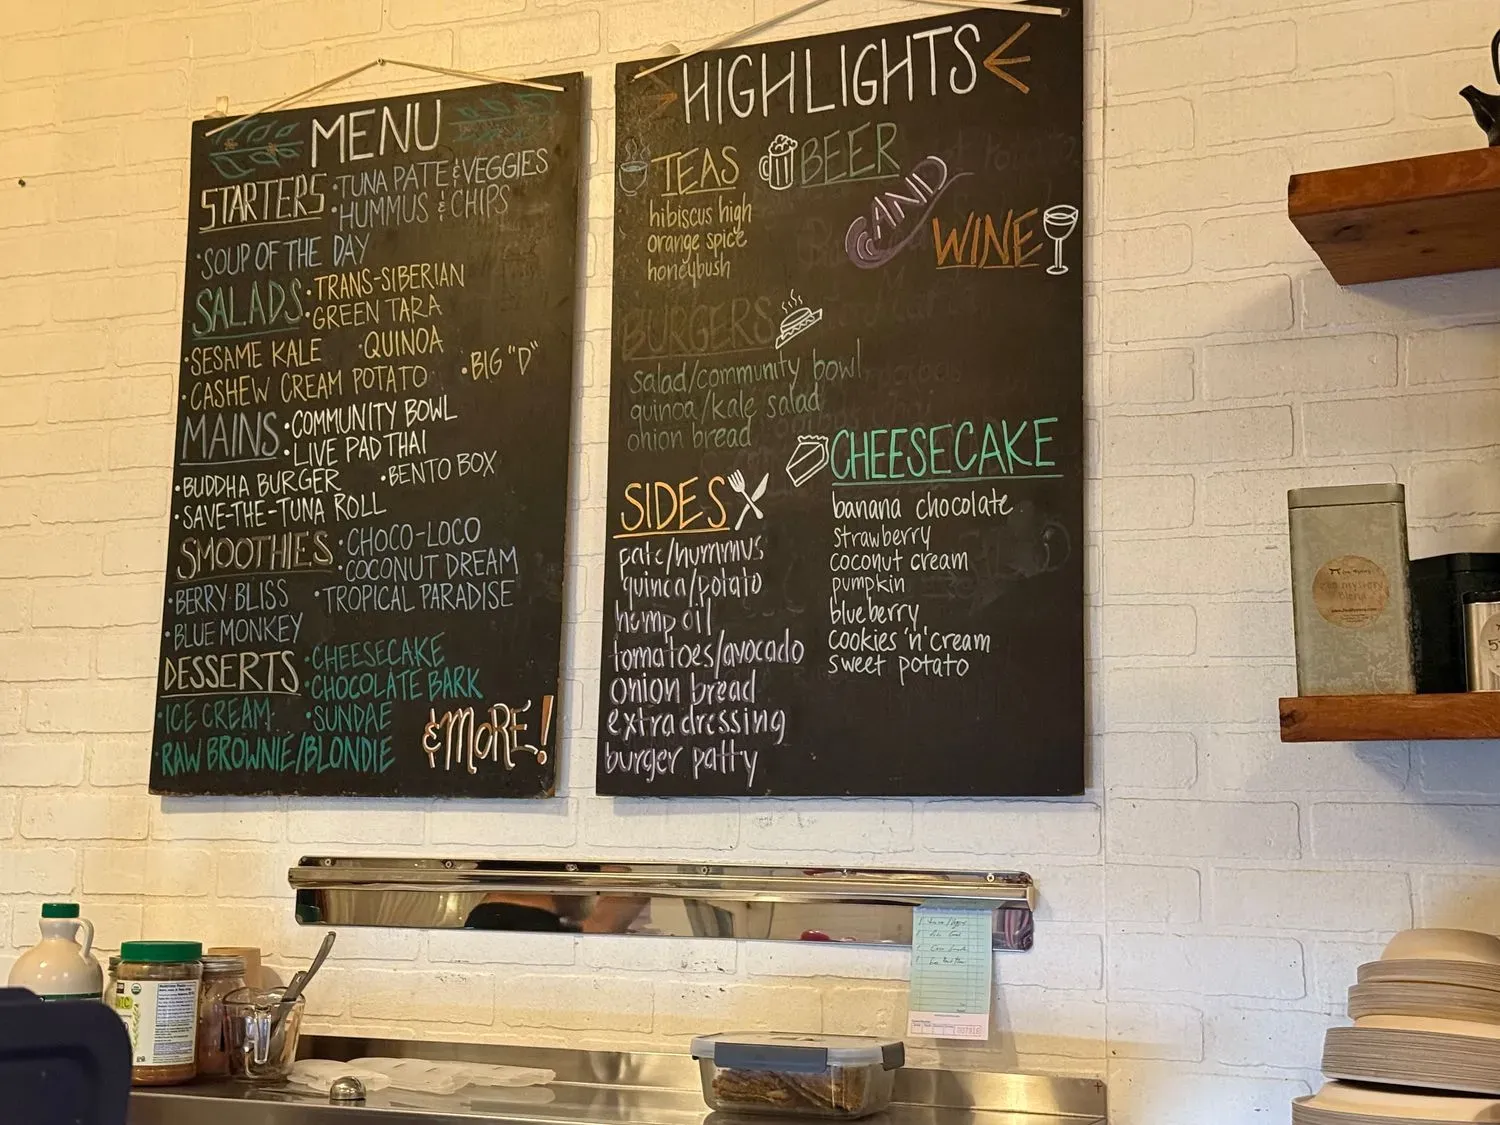 MENU
STARTERS
• TUNA PATE & VEGGIES
• HUMMUS & CHIPS
• SOUP OF THE DAY
SALADS
• TRANS-SIBERIAN
• GREEN TARA
• SESAME KALE • QUINOA
• CASHEW CREAM POTATO • BIG "D"
MAINS
• COMMUNITY BOWL
• LIVE PAD THAI
• BUDDHA BURGER • BENTO BOX
• SAVE-THE-TUNA ROLL
SMOOTHIES
• CHOCO-LOCO
• COCONUT DREAM
• BERRY BLISS • TROPICAL PARADISE
• BLUE MONKEY
DESSERTS
• CHEESECAKE
• CHOCOLATE BARK
• ICE CREAM • SUNDAE
• RAW BROWNIE/BLONDIE
& MORE!
HIGHLIGHTS
TEAS
hibiscus high
orange spice
honeybush
BEER
AND
WINE
BURGERS
salad/community bowl
quinoa/kale salad
onion bread
SIDES
pate/hummus
quinoa/potato
hemp oil
tomatoes/avocado
onion bread
extra dressing
burger patty
CHEESECAKE
banana chocolate
strawberry
coconut cream
pumpkin
blueberry
cookies 'n' cream
sweet potato